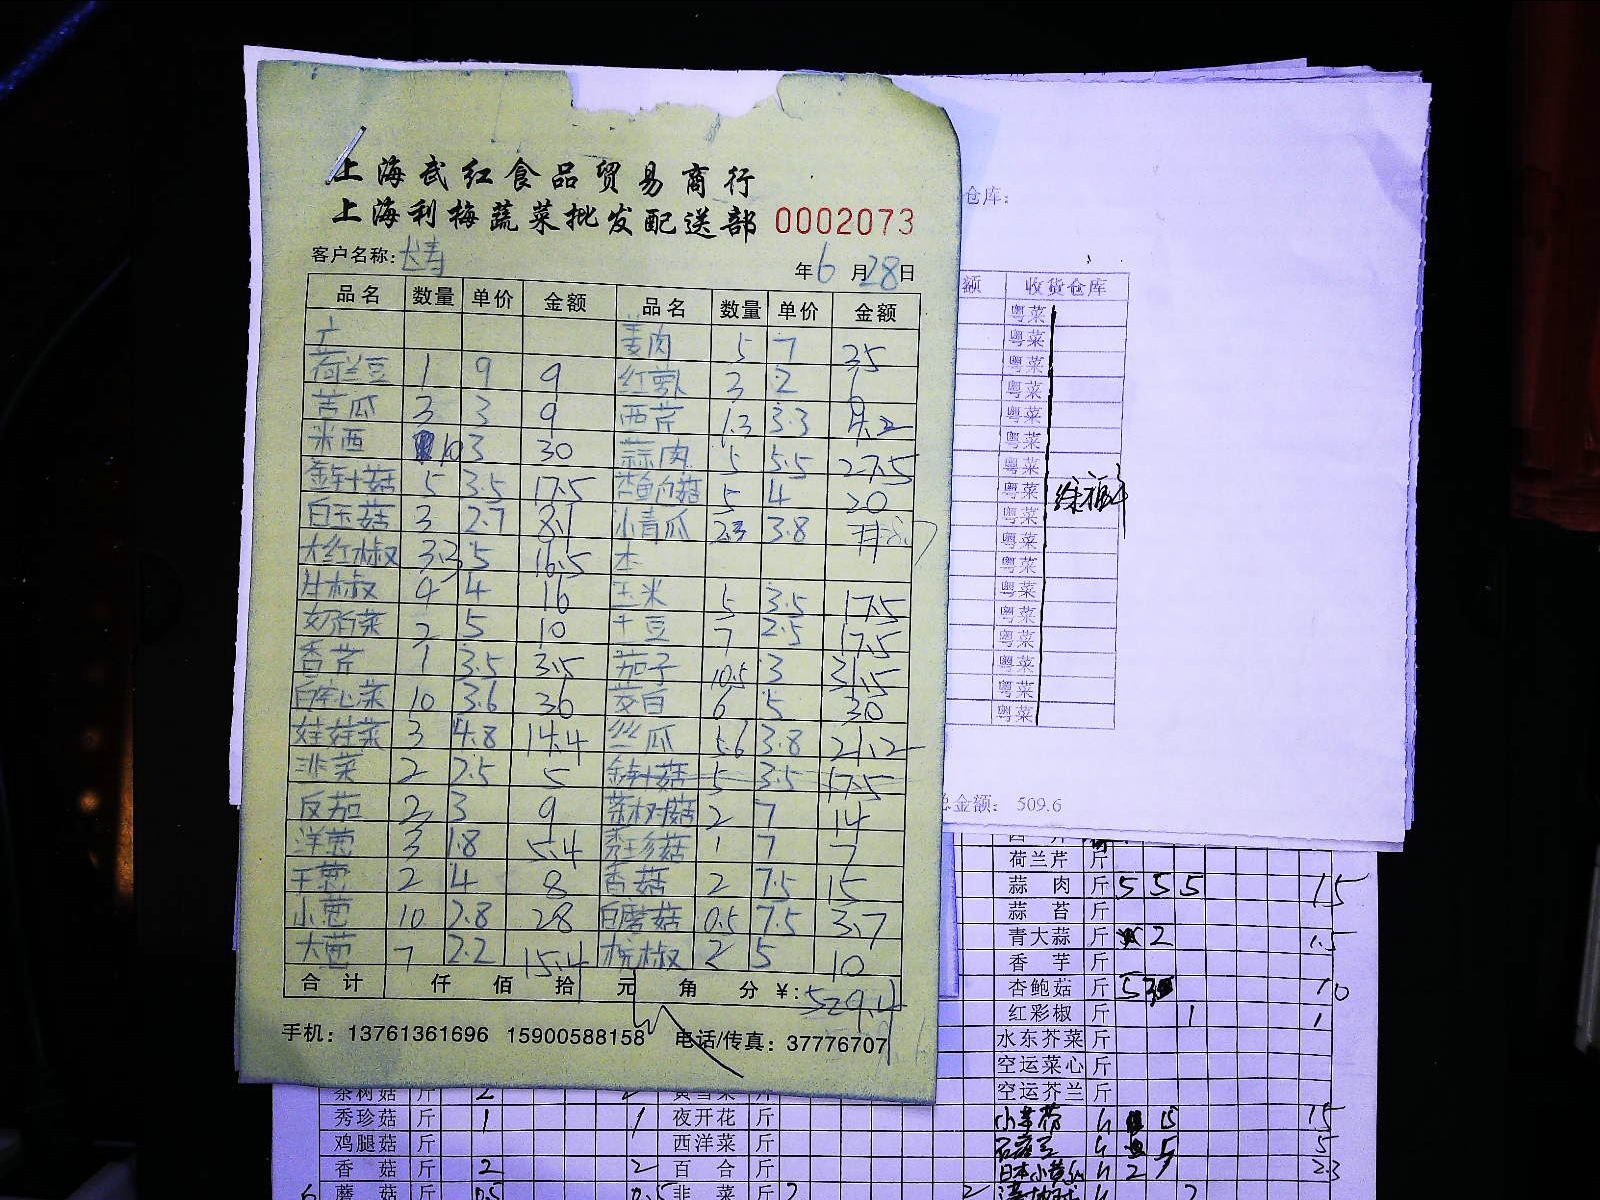 上海武红食品贸易商行
上海利梅蔬菜批发配送部 0002073
客户名称:
年6月28日
品名 数量 单价 金额 品名 数量 单价 金额
姜肉 5 7 35
荷兰豆 1 9 9 红萝卜 3 2 6
苦瓜 3 3 9 西芹 1.3 3.3 4.2
米西 10 3 30 蒜肉 5 5.5 27.5
金针菇 5 3.5 17.5 杏鲍菇 5 4 20
白玉菇 3 2.7 8.1 小青瓜 2.3 3.8 8.7
大红椒 3.3 5 16.5 本
4 4 16 玉米 5 3.5 17.5
奶白菜 2 5 10 干豆 7 2.5 17.5
香芹 1 3.5 3.5 茄子 10.5 3 31.5
空心菜 10 3.6 36 茭白 6 5 30
娃娃菜 3 4.8 14.4 丝瓜 5.6 3.8 21.2
韭菜 2 2.5 5 金针菇 5 3.5 17.5
反茄 3 9 茶树菇 2 7 14
洋葱 3 1.8 5.4 秀珍菇 1 7 7
干葱 2 4 8 香菇 2 7.5 15
小葱 10 2.8 28 白蘑菇 0.5 7.5 3.7
大葱 7 2.2 15.4 椒 2 5 10
合计 仟 佰 拾 元 角 分 ¥: 529.4
手机: 13761361696 15900588158 电话/传真: 37776707
仓库:
额 收货仓库
粤菜
粤菜
粤菜
粤菜
粤菜
粤菜
粤菜
粤菜
粤菜
粤菜
粤菜
粤菜
粤菜
粤菜
粤菜
粤菜
粤菜
总金额: 509.6
荷兰芹 斤
蒜肉 斤 5 5 5 15
蒜苔 斤
青大蒜 斤 2 1.5
香芋 斤
杏鲍菇 斤 5 10
红彩椒 斤 1 1
水东芥菜 斤
空运菜心 斤
空运芥兰 斤
15 15
5 5
日本小黄瓜 2 2.3
茶树菇 斤 2 2 斤
秀珍菇 斤 1 1 夜开花 斤
鸡腿菇 斤 西洋菜 斤
香菇 斤 2 2 百合 斤
蘑菇 斤 0.5 0.5 韭菜 斤 2 2